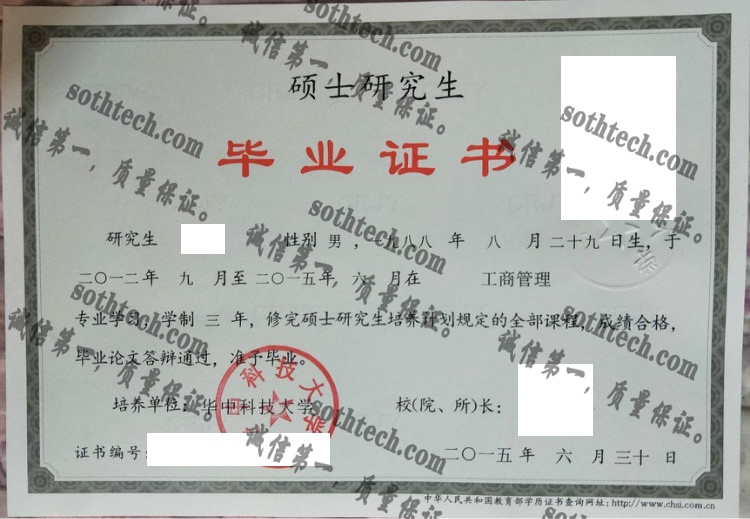 硕士研究生
毕业证书
研究生 性别 男 , 一九八八 年 八 月 二十九 日生, 于
二〇一二年 九 月至 二〇一五年 六 月在 工商管理
专业学习, 学制 三 年, 修完硕士研究生培养计划规定的全部课程, 成绩合格,
毕业论文答辩通过, 准予毕业。
培养单位: 华中科技大学 校(院、所)长:
证书编号: 二〇一五年 六 月 三十 日
中华人民共和国教育部学历证书查询网址: http://www.chsi.com.cn
科技大学
sothtech.com
诚信第一,质量保证。
sothtech.com
诚信第一,质量保证。
sothtech.com
诚信第一,质量保证。
sothtech.com
诚信第一,质量保证。
sothtech.com
诚信第一,质量保证。
sothtech.com
诚信第一,质量保证。
sothtech.com
诚信第一,质量保证。
sothtech.com
诚信第一,质量保证。